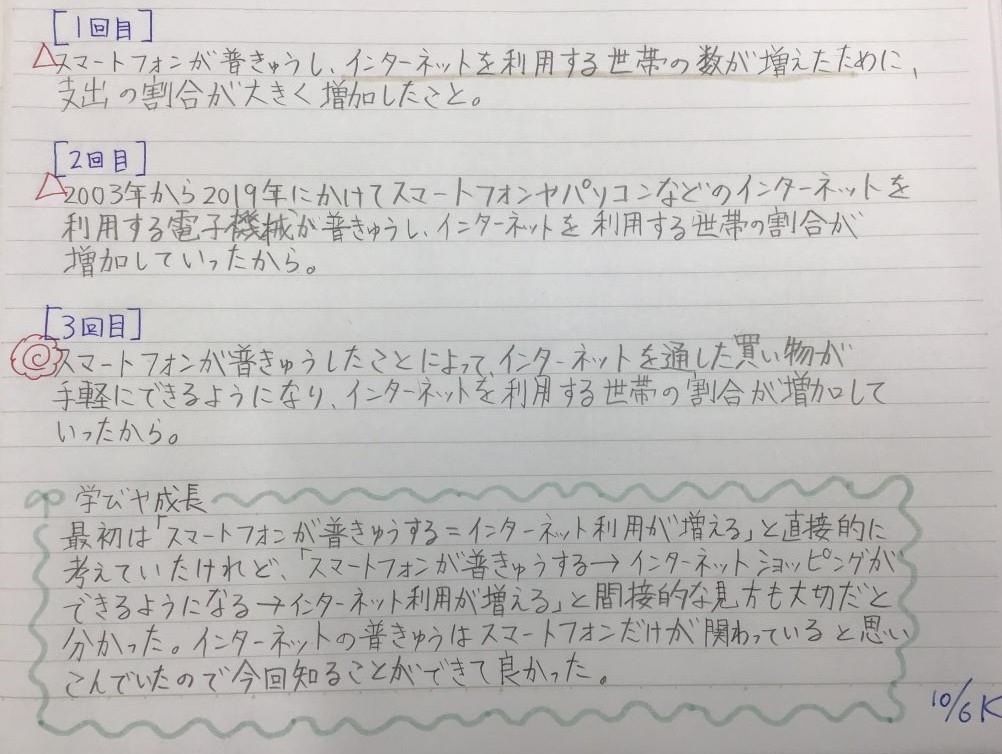 [1回目]
スマートフォンが普きゅうし、インターネットを利用する世帯の数が増えたために、
支出の割合が大きく増加したこと。
[2回目]
2003年から2019年にかけてスマートフォンやパソコンなどのインターネットを
利用する電子機械が普きゅうし、インターネットを利用する世帯の割合が
増加していったから。
[3回目]
スマートフォンが普きゅうしたことによって、インターネットを通した買い物が
手軽にできるようになり、インターネットを利用する世帯の割合が増加して
いったから。
学びや成長
最初は「スマートフォンが普きゅうする=インターネット利用が増える」と直接的に
考えていたけれど、「スマートフォンが普きゅうする→インターネットショッピングが
できるようになる→インターネット利用が増える」と間接的な見方も大切だと
分かった。インターネットの普きゅうはスマートフォンだけが関わっていると思い
こんでいたので今回知ることができて良かった。
10/6 K